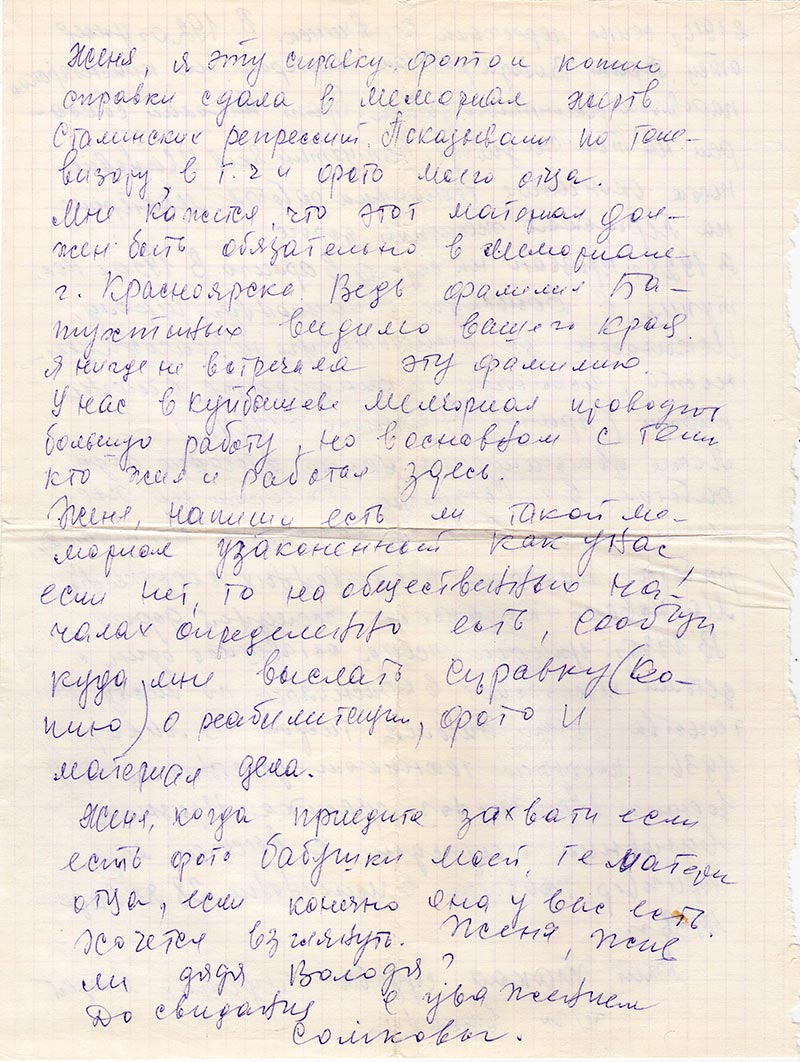 Женя, я эту справку, фото и копию
справки сдала в мемориал жертв
Сталинских репрессий. Показывали по теле-
визору в т. ч и фото моего отца.
Мне кажется, что этот материал дол-
жен быть обязательно в мемориале
г. Красноярска. Ведь фамилия Ба-
тухтиных видимо вашего края.
я нигде не встречала эту фамилию.
У нас в Куйбышеве мемориал проводит
большую работу, но в основном с теми
кто жил и работал здесь.
Женя, напиши есть ли такой ме-
мориал узаконенный как у нас
если нет, то на общественных на-
чалах определенно есть, сообщи
куда мне выслать справку (ко-
пию) о реабилитации, фото и
материал дела.
Женя, когда приедите захвати если
есть фото бабушки моей, те матери
отца, если конечно она у вас есть.
Хочется взглянуть. Женя, жив
ли дядя Володя?
До свидания с уважением